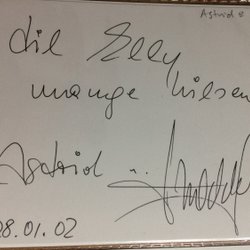 Astrid
dil Elly
mange hilsen
Astrid
28.01.02